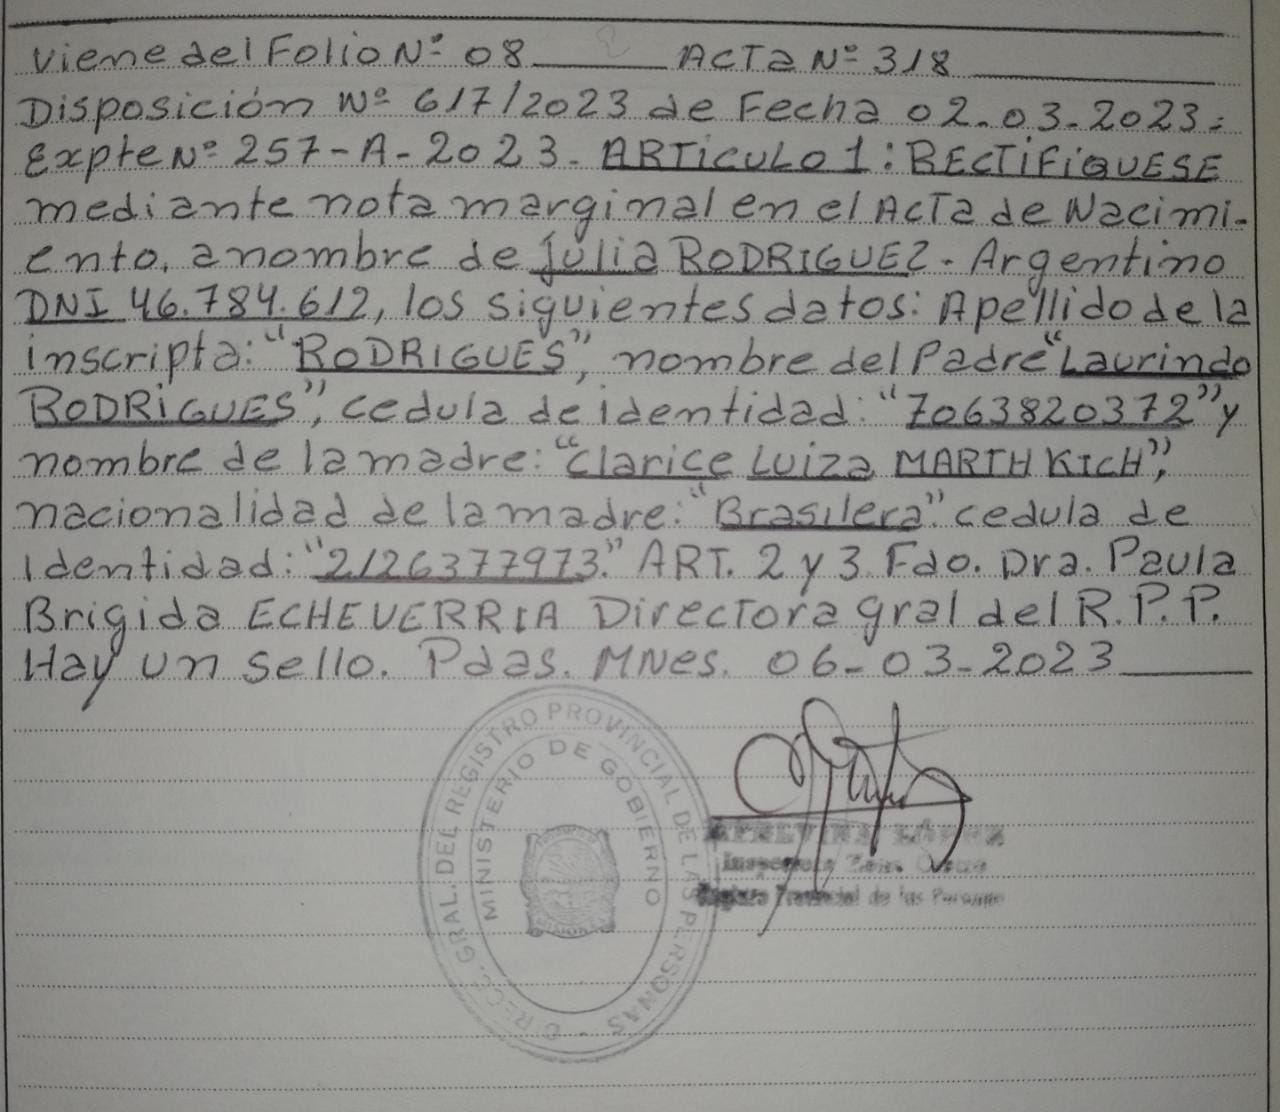 Viene del Folio Nº 08 ACTA Nº 318
Disposición Nº 617/2023 de Fecha 02-03-2023-
Expte Nº 257-A-2023. ARTICULO 1: RECTIFIQUESE
mediante nota marginal en el Acta de Nacimi-
ento, a nombre de Julia RODRIGUEZ - Argentino
DNI 46.784.612, los siguientes datos: Apellido de la
inscripta: "RODRIGUES", nombre del Padre "Laurindo
RODRIGUES", cedula de identidad: "7063820372" y
nombre de la madre: "Clarice Luiza MARTH KICH",
nacionalidad de la madre: "Brasilera" cedula de
Identidad: "2126377973." ART. 2 y 3 Fdo. Dra. Paula
Brigida ECHEVERRIA Directora gral del R.P.P.
Hay un sello. Pdas. MNes. 06-03-2023
DIRECC. GRAL. DEL REGISTRO PROVINCIAL DE LAS PERSONAS -
MINISTERIO DE GOBIERNO
MISIONES
Inspectora Zona
Registro Provincial de las Personas